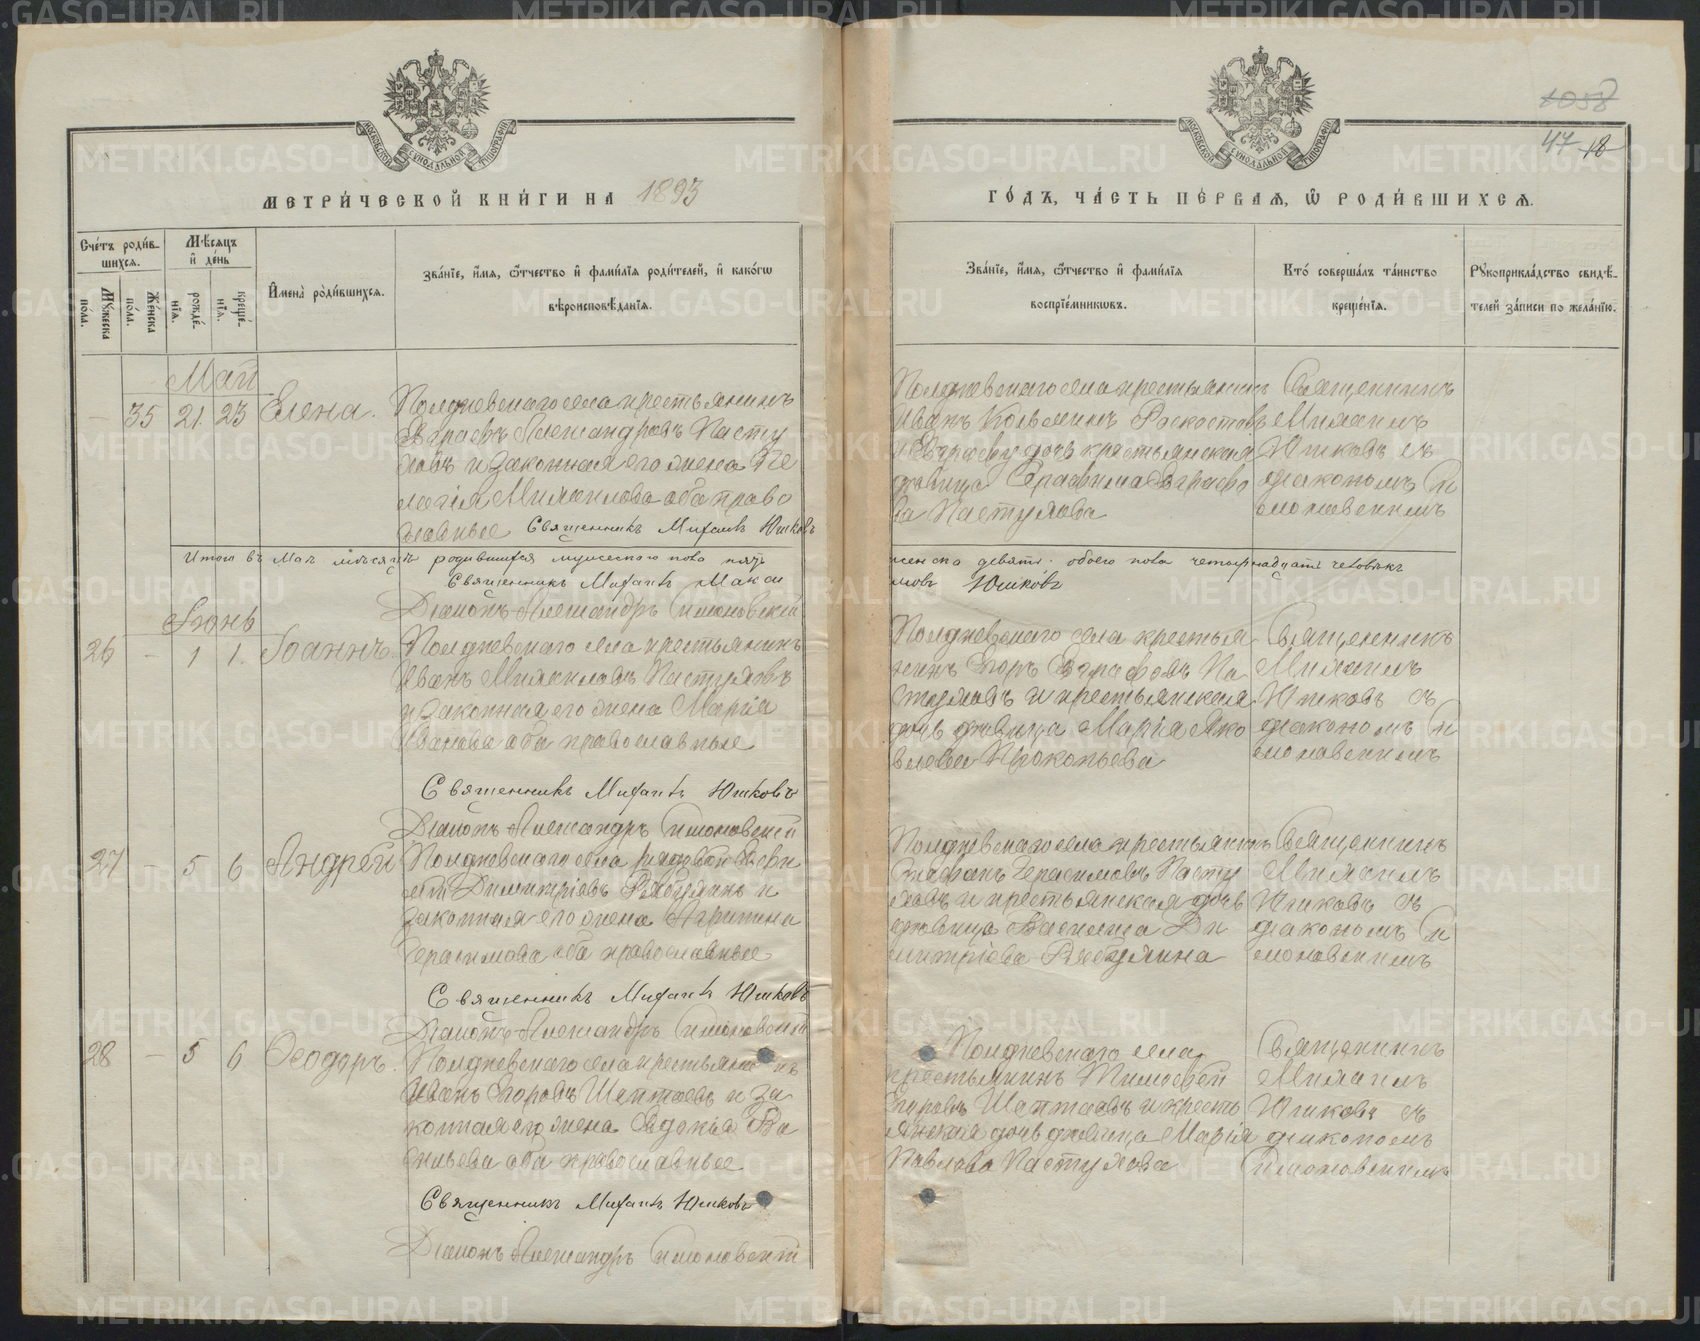 1058
47 18
МОСКОВСКОЙ СѴНОДАЛЬНОЙ ТИПОГРАФІИ
МОСКОВСКОЙ СѴНОДАЛЬНОЙ ТИПОГРАФІИ
МЕТРИ́ЧЕСКОЙ КНИ́ГИ НА 1893
ГО́ДЪ, ЧА́СТЬ ПЕ́РВАѦ, Ѡ РОДИ́ВШИХСѦ.
Сче́тъ роди́в-
шихсѧ.
Му́жеска
по́ла.
Же́нска
по́ла.
Мѣ́сѧцъ
и҆ де́нь
рожде́-
нїѧ.
креще́-
нїѧ.
И҆мена̀ роди́вшихсѧ.
Зва́нїе, и҆́мѧ, ѻ҆́тчество и҆ фами́лїѧ роди́телей, и҆ како́гѡ
вѣроисповѣ́данїѧ.
Зва́нїе, и҆́мѧ, ѻ҆́тчество и҆ фами́лїѧ
воспрїе́мникѡвъ.
Кто́ соверша́лъ та́инство
креще́нїѧ.
Рꙋкоприкла́дство свидѣ́-
телей за́писи по жела́нїю.
Май
35 21. 23 Елена.
Полдневскаго села крестьянинъ
Евграфъ Александровъ Пасту
ховъ и законная его жена Пе
лагія Михаилова оба право
славные Священникъ Михаилъ Юшковъ
Полдневскаго села крестьянинъ
Иванъ
и
дѣвица Серафима Евграфо
ва Пастухова
Священникъ
Михаилъ
Юшковъ съ
діакономъ Си
моновскимъ
Итого въ Маѣ мѣсяцѣ родившихся мужескаго пола пять
женска девять. обоего пола четырнадцать человѣкъ
Священникъ Михаилъ Макси
мовъ Юшковъ
Діаконъ Александръ Симоновскій
Іюнь
26 — 1 1. Іоаннъ.
Полдневскаго села крестьянинъ
Иванъ Михаиловъ Пастуховъ
и законная его жена Марія
Иванова оба православные
Священникъ Михаилъ Юшковъ
Діаконъ Александръ Симоновскій
Полдневскаго села крестья
нинъ Егоръ Евграфовъ Па
стуховъ и крестьянская
дочь дѣвица Марія Яко
влева Прокопьева
Священникъ
Михаилъ
Юшковъ съ
діакономъ Си
моновскимъ
27 — 5 6 Андрей
Полдневскаго села рядовой
Димитріевъ Рябухинъ и
законная его жена Агрипина
Герасимова оба православные
Священникъ Михаилъ Юшковъ
Діаконъ Александръ Симоновскій
Полдневскаго села крестьянинъ
Стефанъ Герасимовъ Пасту
ховъ и крестьянская дочь
дѣвица Василиса Ди
митріева Рябухина
Священникъ
Михаилъ
Юшковъ съ
діакономъ Си
моновскимъ
28 — 5 6 Ѳеодоръ.
Полдневскаго села крестьянинъ
Иванъ Егоровъ Шептаевъ и за
конная его жена Евдокія Ва
сильева оба православные
Священникъ Михаилъ Юшковъ
Діаконъ Александръ Симоновскій
Полдневскаго села
крестьянинъ Тимофей
Егоровъ Шептаевъ и кресть
янская дочь дѣвица Марія
Павлова Пастухова
Священникъ
Михаилъ
Юшковъ съ
діакономъ
Симоновскимъ
METRIKI.GASO-URAL.RU